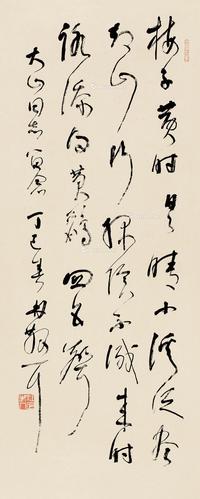 梅子黄时日日晴小溪泛尽
却山行绿阴不减来时
路添得黄鹂四五聲
大山同志留念 丁巳春 林散耳